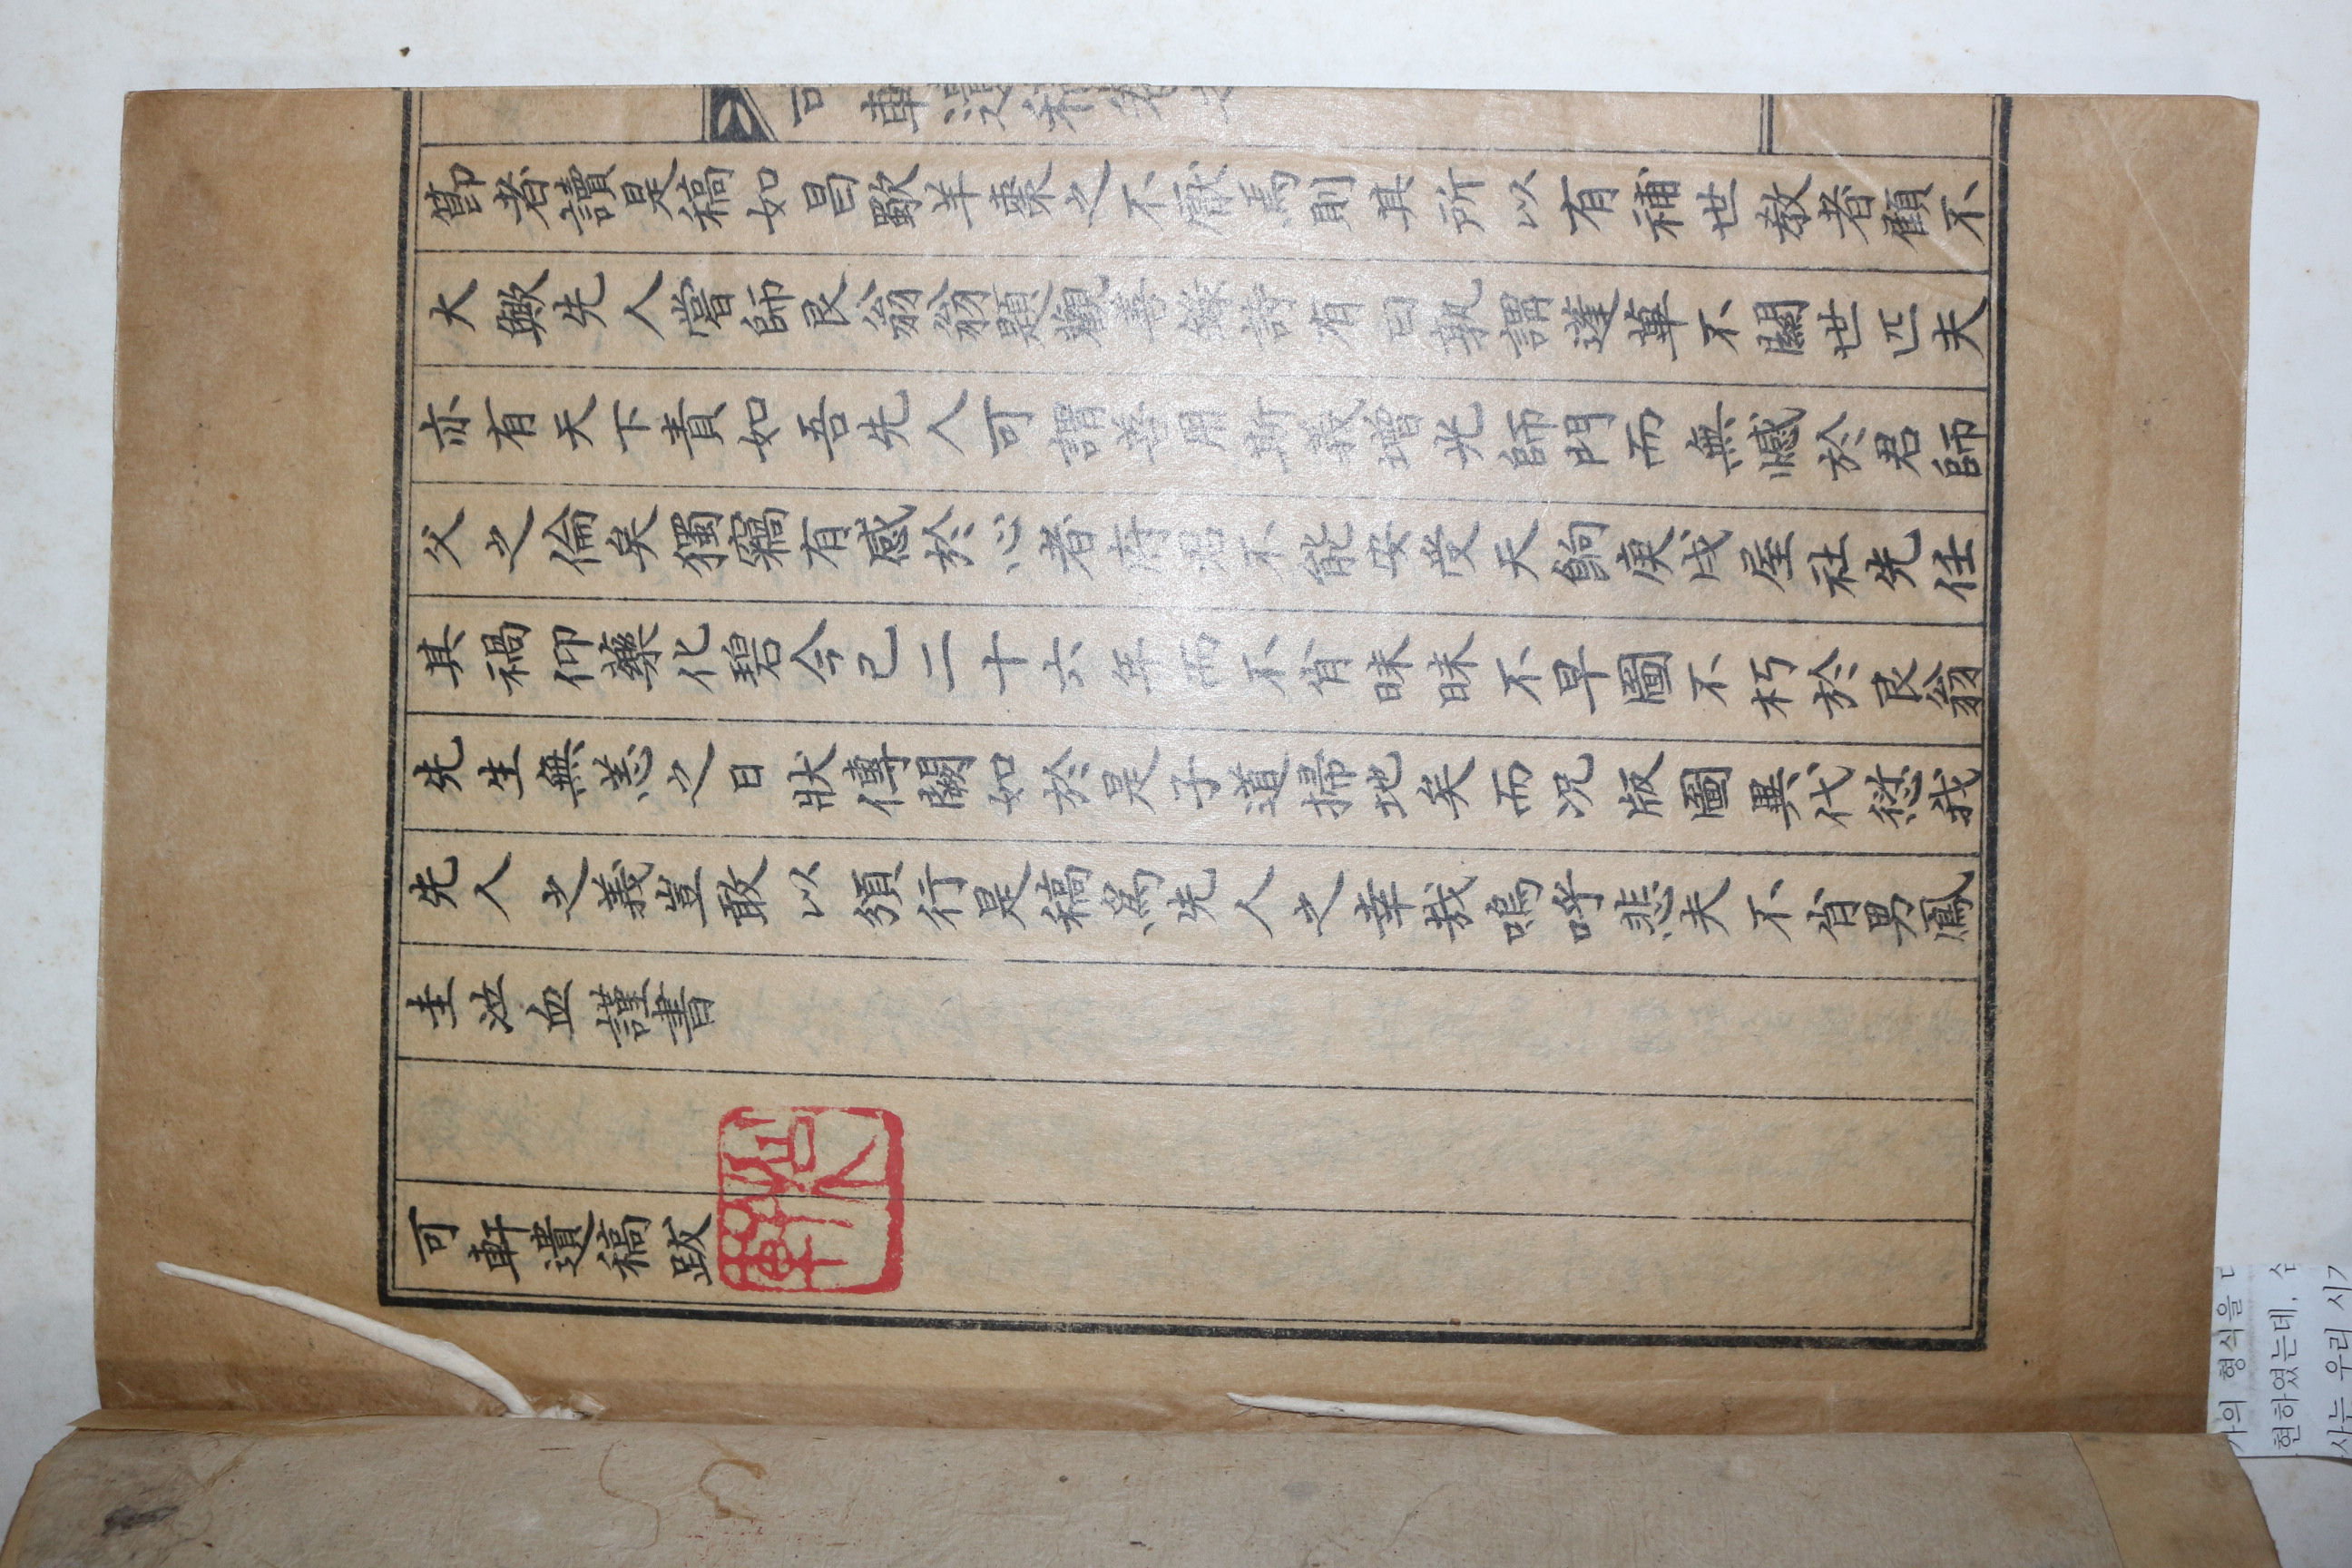 節者讀是稿如昌歜羊棗之不厭焉則其所以有補世敎者顧不
大歟先人嘗師艮翁翁題觀善錄詩有曰孰謂蓬蓽不關世匹夫
亦有天下責如吾先人可謂善用斯義增光師門而無憾於君師
父之倫矣獨竊有感於心者府君不能安受天餉庚戌屋社先任
其禍仰藥化碧今已二十六年而不肖昧昧不早圖不朽於艮翁
先生無恙之日狀傳闕如於是子道掃地矣而況版圖異代愆我
先人之義豈敢以須行是稿爲先人之幸哉嗚呼悲夫不肖男鳳
圭泣血謹書
可軒遺稿跋
가의 형식을
현하였는데,
사는 우리 시